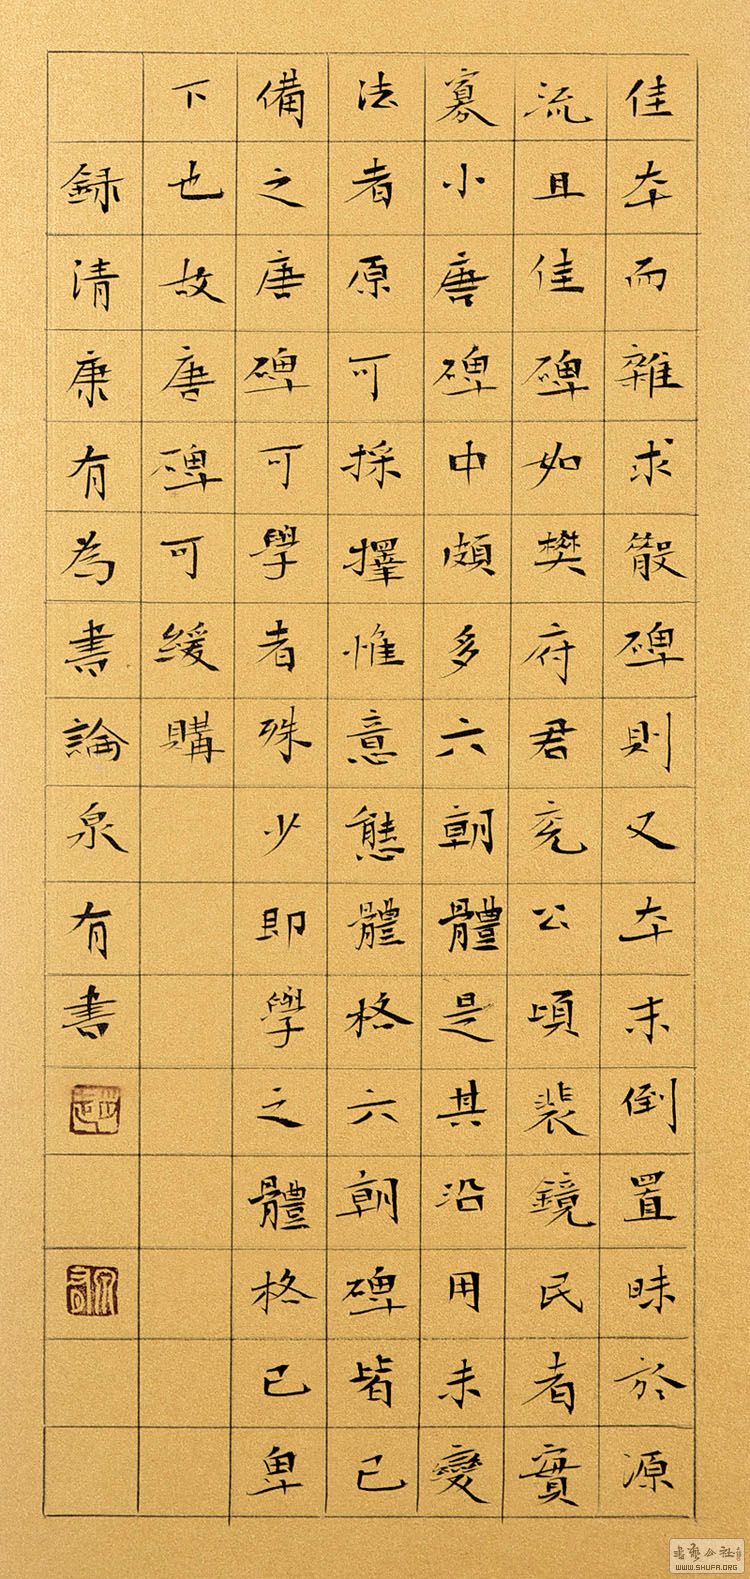 佳本而雜求散碑則又本末倒置昧於源
流且佳碑如樊府君兖公頌裴鏡民者實
寡小唐碑中頗多六朝體是其沿用未變
法者原可採擇惟意態體格六朝碑皆已
備之唐碑可學者殊少即學之體格已卑
下也故唐碑可緩購
録清康有為書論泉有書
書藝公社
WWW.SHUFA.ORG